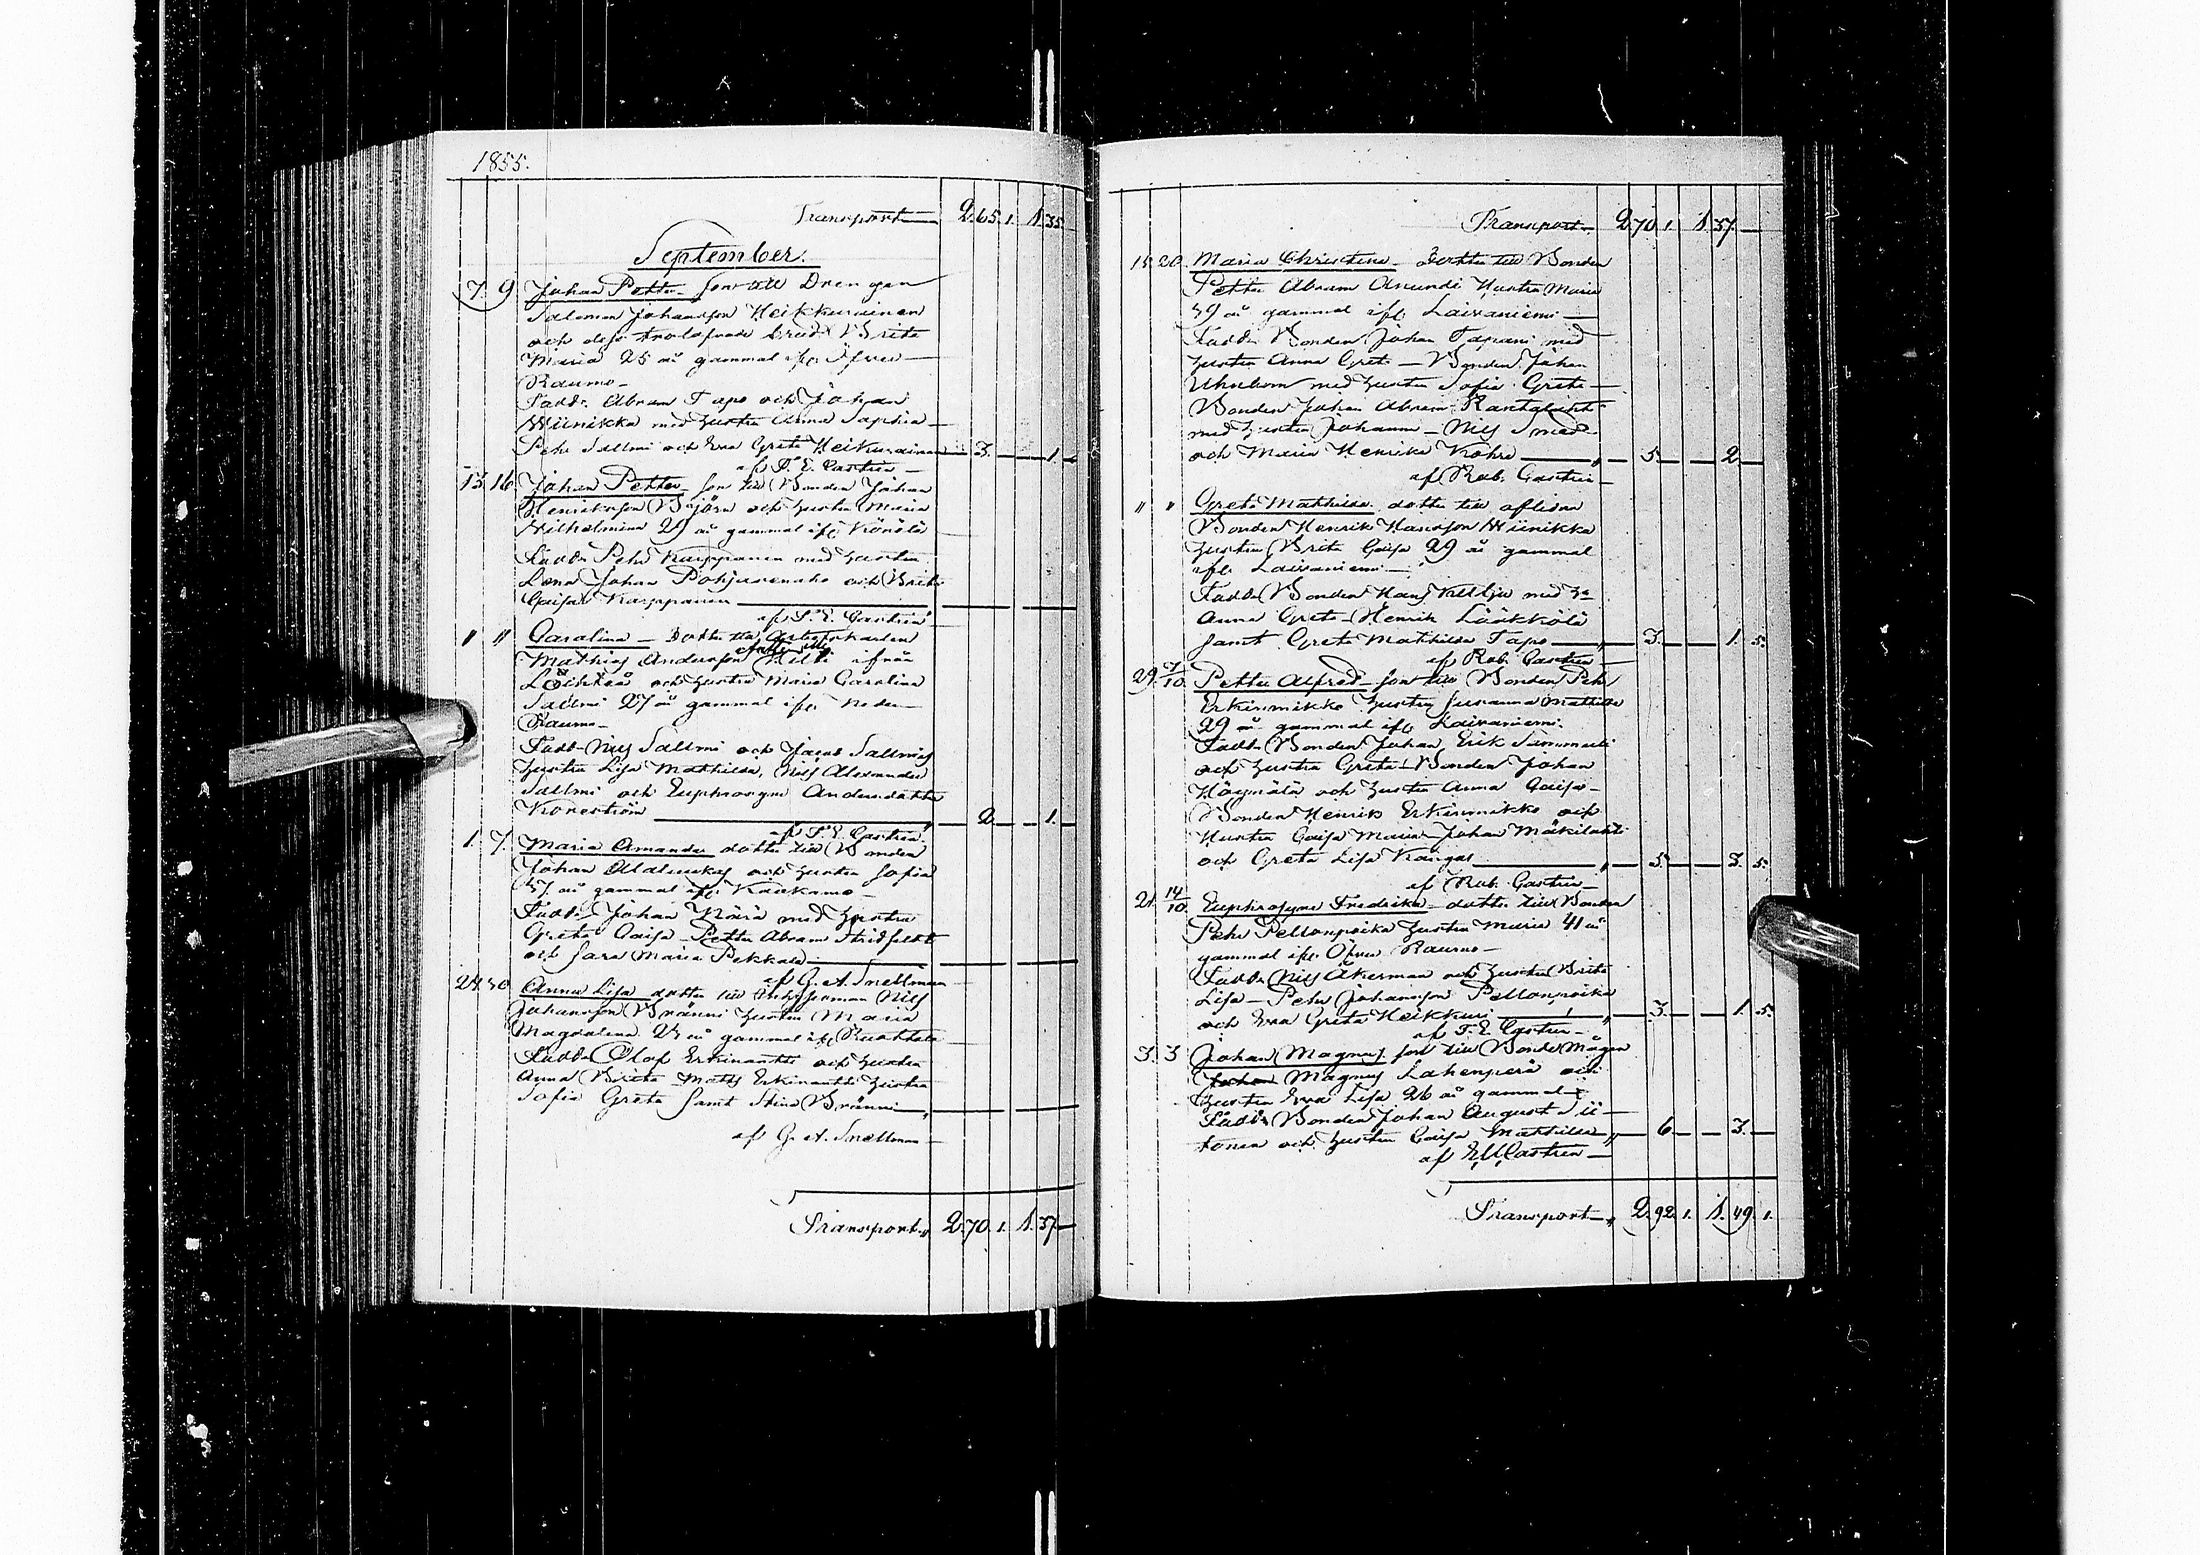 1855.
Transport 2.65.1. 1.35.
September.
7. 9. Johan Petter son till Drengen
Salomon Johansson Heikkurainen
och dess trolofvade brud Brita
Maria 25 år gammal ifr. Öfver
Raumo
Fadd. Abram Tapo och Johan
Wiinikka med hustru Anna Sophia
Pehr Sallmi och Eva Greta Heikurainen 3. 1.
af F. E. Castrén
13. 16. Johan Petter son till Bonden Johan
Henriksson Björn och hustru Maria
Wilhelmina 29 år gammal ifr. Könölä
Fadd. Pehr Karppanen med hustru
Lena Johan Pohjasenaho och Brita
Caisa Karppanen
af F. E. Castrén
" " Carolina Dotter till Arbetskarlen
Mathies Andersson ifrån
och hustru Maria Carolina
Sallmi 27 år gammal ifr. Neder
Raumo
Fadd. Nils Sallmi och Jacob Sallmis
hustru Lisa Mathilda, Nils Alexander
Sallmi och Euphrosyne Andersdotter
Koreström 2. 1.
af F. E. Castrén
1. 7. Maria Amanda dotter till Bonden
Johan och hustru Sofia
37 år gammal ifr. Kaakamo
Fadd. Johan Köörä med hustru
Greta Caisa Petter Abram Stridfeldt
och Sara Maria Pekkala
af G. A. Snellman
24. 30. Anna Lisa dotter till Nils
Johansson Bränni hustru Maria
Magdalena år gammal ifr. Ruottala
Fadd. Olof Erkinantti och hustru
Anna Brita Matts Erkinantti hustru
Sofia Greta samt Stina Bränni
af G. A. Snellman
Transport 2.70.1. 1.37
Transport 2.70.1. 1.37
15. 20. Maria Christina Dotter till Bonden
Petter Abram Anundi Hustru Maria
39 år gammal ifr. Laivaniemi
Fadd. Bonden Johan Tapani med
hustru Anna Greta Bonden Johan
med hustru Sofia Greta
Bonden Johan Abram Rantalahti
med hustru Johanna Nils Smed
och Maria Henrika Kohra 5. 2.
af Rob. Castrén
" " Greta Mathilda dotter till aflidne
Bonden Henrik Hansson Wiinikka
hustru Brita Caisa 29 år gammal
ifr. Laivaniemi
Fadd. Bonden Hans Keltja med h
Anna Greta Henrik Lääkkölä
samt Greta Mathilda Tapo 3. 1. 5.
af Rob. Castrén
29. 7/10. Petter Alfred son till Bonden Pehr
Erkinmikko hustru Susanna Mathilda
29 år gammal ifr. Laivaniemi
Fadd. Bonden Johan Erik Sammeli
och hustru Greta Bonden Johan
och hustru Anna Caisa
Bonden Henrik Erkinmikko och
Hustru Caisa Maria Johan Mäkilahti
och Greta Lisa Kangas 5. 3. 5.
af Rob. Castrén
21. 14/10. Euphrosyne Fredrika dotter till Bonden
Pehr Pellonpoika hustru Maria 41 år
gammal ifr. Öfver Raumo
Fadd. Nils Åkerman och hustru Brita
Lisa Pehr Johansson Pellonpoika
och Eva Greta Heikkuri 3. 1. 5.
af F. E. Castrén
3. 3. Johan Magnus son till Bonde Mågen
Johan Magnus Lakenperä och
hustru Eva Lisa 26 år gammal
Fadd. Bonden Johan August Sii-
tonen och hustru Caisa Mathilda 6. 3.
af E. U. Castrén
Transport 2.92.1. 1.49.1.